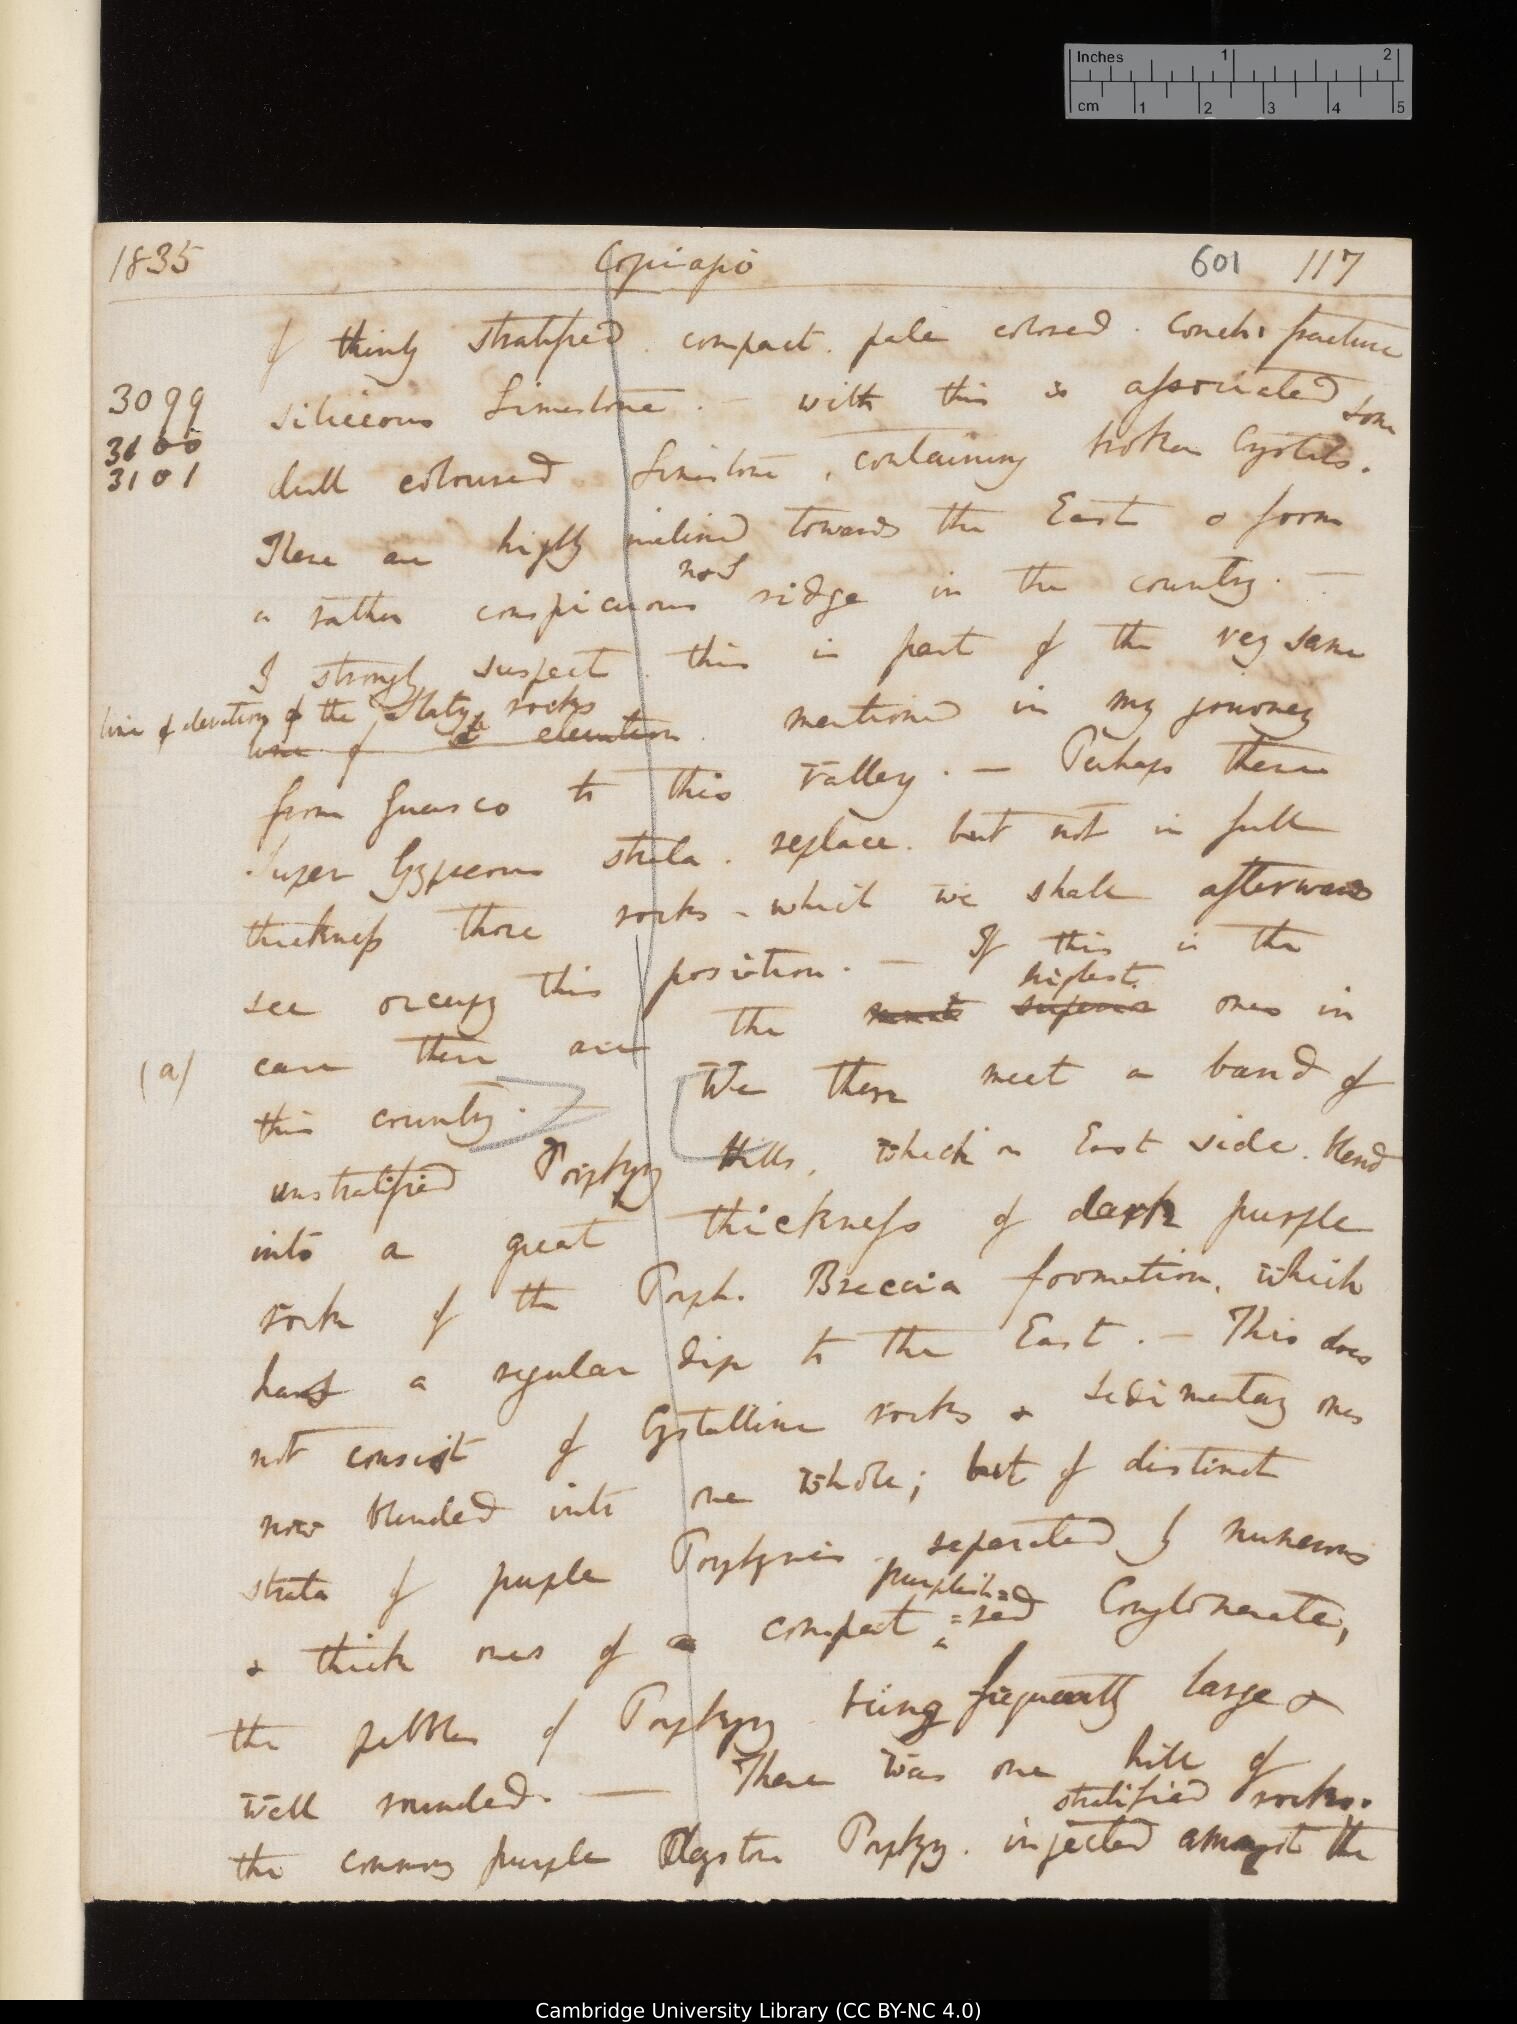 Inches 1 2
cm 1 2 3 4 5
1835 Copiapò 601 117
of thinly stratified. compact. pale colored. Conch: fracture
3099 siliceous Limestone. — with this is associated some
3100
3101 dull coloured Limestone, containing broken Crystals.
These are highly inclined towards the East & form
a rather conspicuous N & S ridge in the country. —
I strongly suspect this is part of the very same
line of elevation of the Slaty rocks
line of elevation. mentioned in my journey
from Guasco to this valley. — Perhaps these
Super Gypseous strata. replace. but not in full
thickness those rocks - which we shall afterwards
see occupy this position. — If this is the
highest
(a) case these are the superior ones in
this country. — We then meet a band of
unstratified Porphyry Hills, which on East side. blend
into a great thickness of dark purple
rock of the Porph. Breccia formation, which
has a regular dip to the East. — This does
not consist of Crystalline rocks & sedimentary ones
now blended into one whole; but of distinct
strata of purple Porphyries separated by numerous
purplish=
& thick ones of a compact =red Conglomerate,
the pebbles of Porphyry being frequently large &
well rounded. — There was one hill of
stratified rocks.
the common purple Claystone Porphyry. injected amongst the
Cambridge University Library (CC BY-NC 4.0)